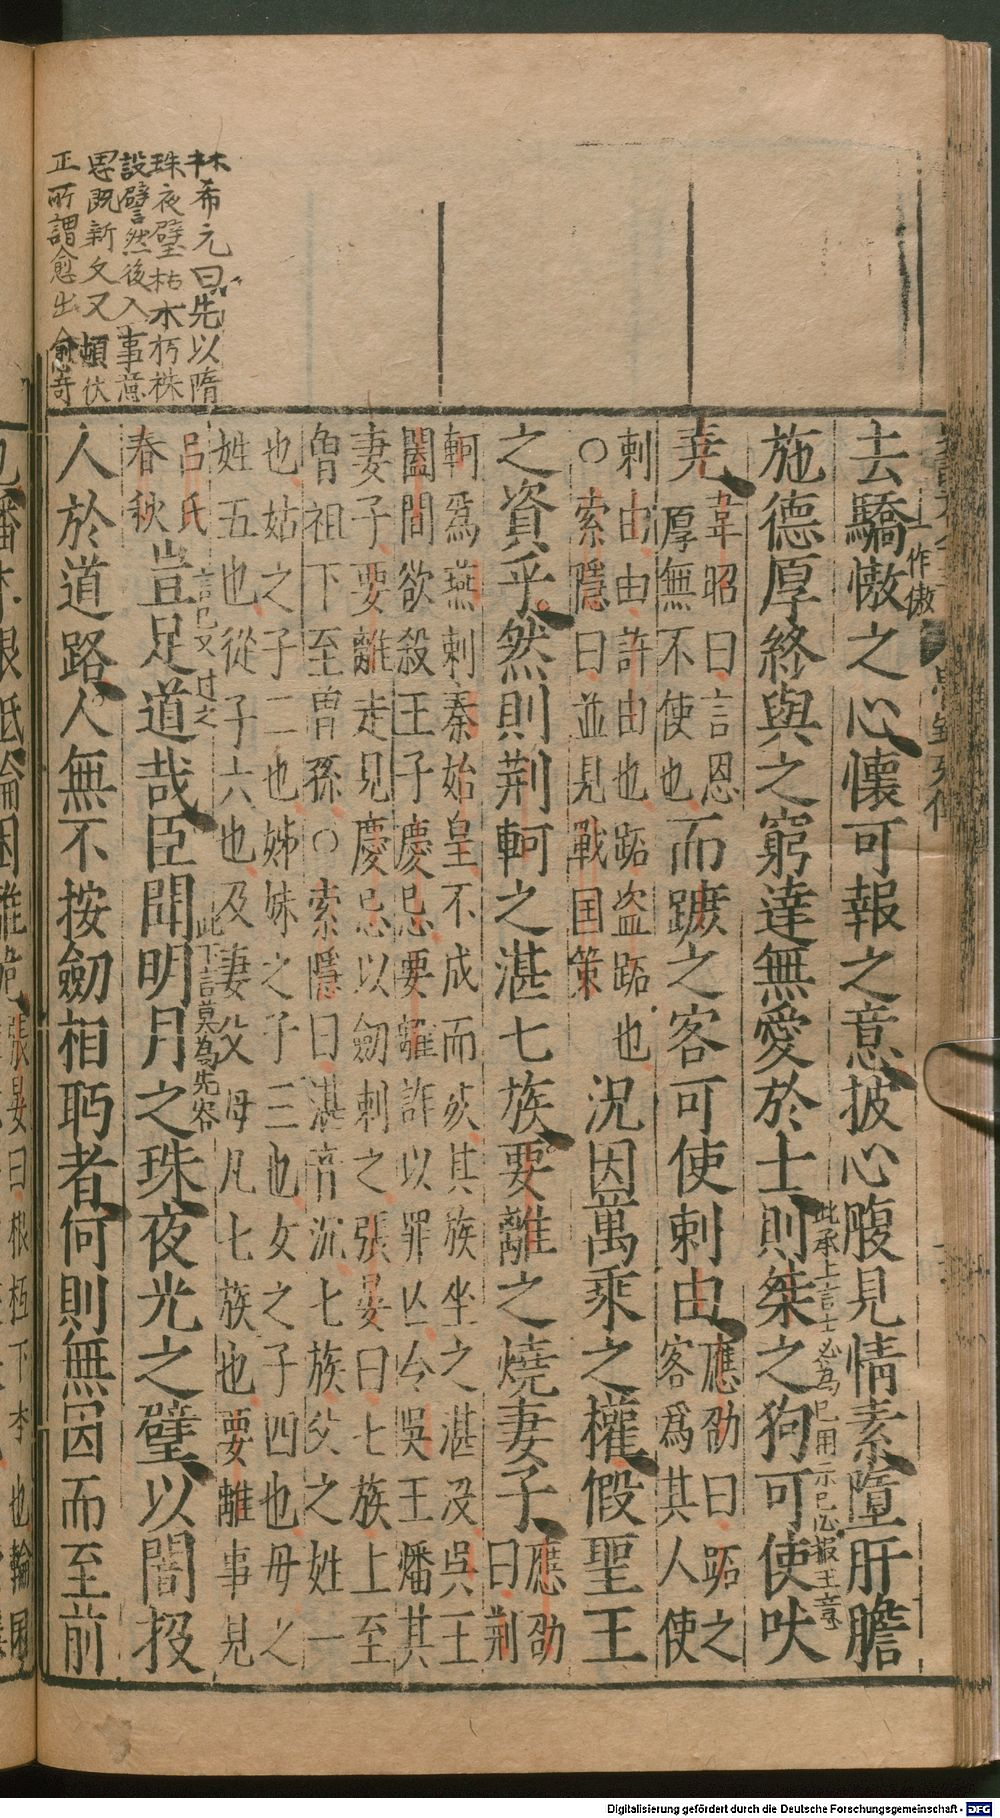 去驕慠之心懷可報之意披心腹見情素墮肝膽
一作傲
此承上言士必為己用示己必報王意
施德厚終與之窮達無愛於士則桀之狗可使吠
堯
韋昭曰言恩
厚無不使也
而蹠之客可使刺由
應劭曰跖之
客爲其人使
刺由由許由也跖盗跖也
○索隱曰並見戰国策
況因萬乘之權假聖王
之資乎然則荆軻之湛七族要離之燒妻子
應劭
曰荆
軻爲燕刺秦始皇不成而死其族坐之湛没吳王
闔閭欲殺王子慶忌要離詐以罪亾令吳王燔其
妻子要離走見慶忌以劒刺之張晏曰七族上至
曾祖下至曾孫○索隱曰湛音沉七族父之姓一
也姑之子二也姊妹之子三也女之子四也母之
姓五也從子六也及妻父母凡七族也要離事見
吕氏
春秋
豈足道哉臣聞明月之珠夜光之璧以闇投
言己又过之
此下言莫為先容
人於道路人無不按劒相眄者何則無因而至前
林希元曰先以隋
珠夜璧枯木朽株
設譬然後入事意
思既新文又頓伏
正所謂愈出愈竒
張晏曰根柢下本也輪囷
Digitalisierung gefördert durch die Deutsche Forschungsgemeinschaft - DFG